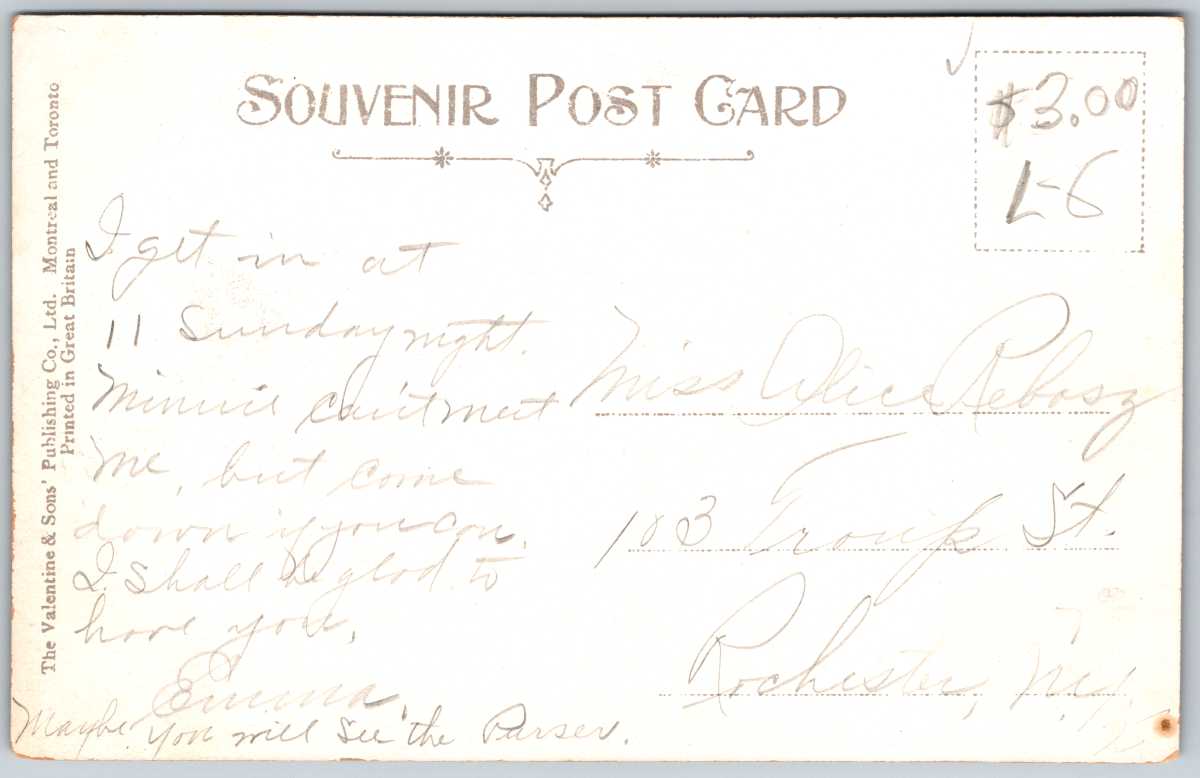 SOUVENIR POST CARD
$3.00
L-6
The Valentine & Sons' Publishing Co., Ltd. Montreal and Toronto
Printed in Great Britain
I get in at
11 Sunday night.
Minnie can't meet
me, but come
down if you can.
I shall be glad to
have you,
Emma.
Maybe you will see the Purser.
Miss Alice
103 Troup St.
Rochester, N.Y.